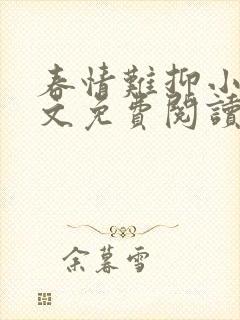 春情難抑小
文免費閱讀
余暮雪